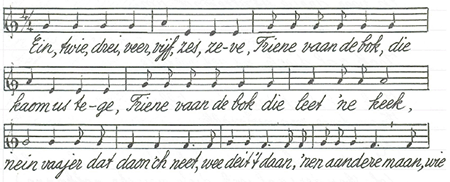 Ein, twie, drei, veer, vijf, zes, ze-ve, Triene vaan de bok, die
kaom us te-ge, Triene vaan de bok die leet 'ne keek,
nein vaajer dat dam'ch neet, wee deit 't daan, 'nen aandere maan, wie